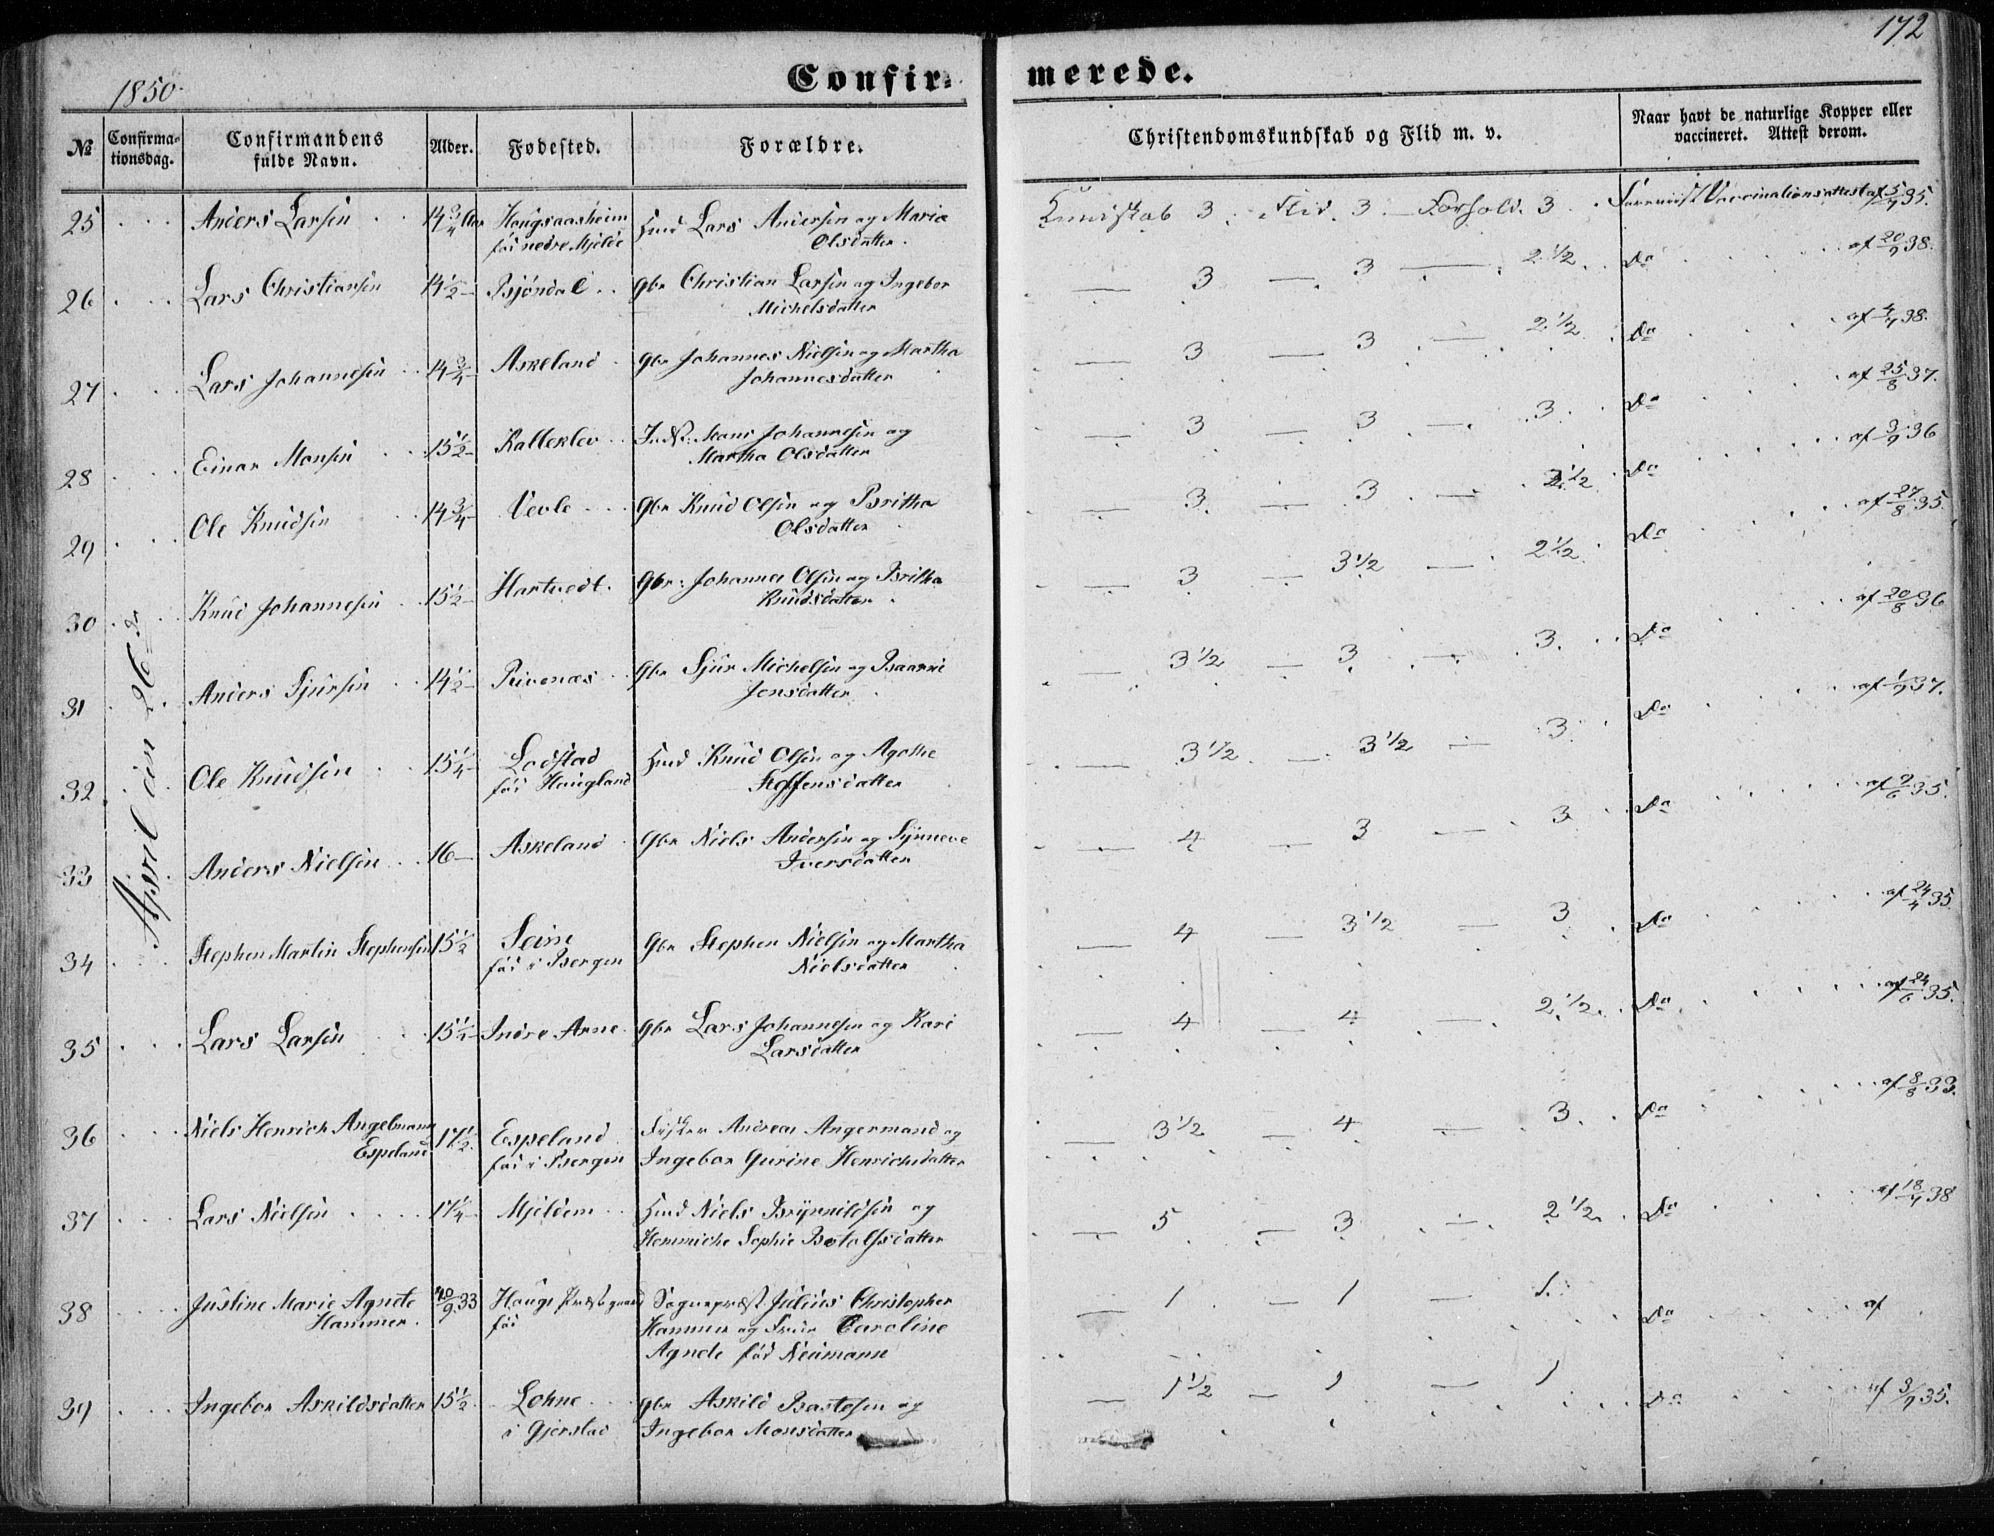 172
1850.
Confir= merede.
№ Confirma=tionsdag. Confirmandens fulde Navn. Alder. Fødested. Forældre. Christendomskundskab og Flid m. v. Naar havt de naturlige Kopper eller vaccineret. Attest derom.
April den 26de
25 Anders Larsen 14 3/4 Aar Haugsaasheim Hmd Lars Andersen og Maria Kundskab 3. Flid. 3 — Forhold. 3 Vaccinationsattest af 5/9 35.
fød nedre Mjelde Olsdatter.
26 Lars Christiansen 14 1/2 — Bjöndal Gbr Christian Larsen og Ingebor — 3 — 3 — 2 1/2 Do af 20/9 38.
Michelsdatter
27 Lars Johannesen 14 3/4 — Askeland Gbr Johannes Nielsen og Martha — 3 — 3 — 2 1/2 Do af 4/4 38.
Johannesdatter
28 Einar Monsen 15 1/2 — Kalleklev Mons Johannesen og — 3 — 3 — 3 Do af 25/8 37.
Martha Olsdatter
29 Ole Knudsen 14 3/4 — Vevle Gbr Knud Olsen og Britha — 3 — 3 — 2 1/2 Do af 3/9 36
Olsdatter
30 Knud Johannesen 15 1/2 — Hartvedt. Gbr: Johannes Olsen og Britha — 3 — 3 1/2 — 2 1/2 Do af 27/8 35.
Knudsdatter
31 Anders Sjursen 14 1/2 — Rivenæs Gbr Sjur Michelsen og Baarni — 3 1/2 — 3 — 3 Do af 20/8 36
Jonsdatter
32 Ole Knudsen 15 1/4 — Lodstad Hmd Knud Olsen og Agathe — 3 1/2 — 3 1/2 — 3 Do af 1/9 37.
fød Haugland Steffensdatter
33 Anders Nielsen 16 — Askeland Gbr Niels Andersen og Synneve — 4 — 3 — 3 Do af 9/6 35.
Iversdatter
34 Stephen Martin Stephensen 15 1/2 Seim Gbr Stephen Nielsen og Martha — 4 — 3 1/2 — 3 Do af 24/4 35.
fød i Bergen Nielsdatter
35 Lars Larsen 15 1/2 — Indre Arne Gbr Lars Johannesen og Kari — 4 — 4 — 2 1/2 Do af 24/6 35.
Larsdatter
36 Niels Henrich Angelmann 17 1/2. Espeland Fisker Andreas Angermand og — 3 1/2 — 4 — 3 Do af 8/8 33.
Espeland fød i Bergen Ingebor Gurine Henrichsdatter
37 Lars Nielsen 17 1/4 — Mjeldem Hmd Niels Brynnildsen og — 5 — 3 — 2 1/2 Do af 18/4 38
Hemmiche Sophie Botolfsdatter
38 Justine Marie Agnete 20/9 33 Haugs Præstegaard Sognepræst Julius Christopher — 1 — 1 — 1. Do af
Hammer. fød Hammer og Frue Caroline
Agnete fød Neumann
39 Ingebor Askildsdatter 15 1/2. Lohne Gbr Askild Bastesen og — 1 1/2 — 1 — 1 Do af 3/9 35.
i Gjerstad Ingebor Monsdatter